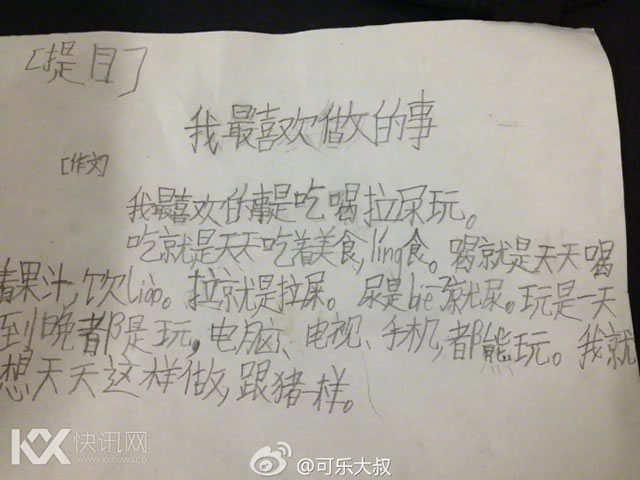 [提目]
我最喜欢做的事
[作文]
我最喜欢的事是吃喝拉尿玩。
吃就是天天吃着美食,líng食。喝就是天天喝
着果汁,饮liào。拉就是拉屎。尿是biē就尿。玩是一天
到晚都是玩,电脑、电视、手机,都能玩。我就
想天天这样做,跟猪一样。
KX 快讯网
www.kxnews.cn
@可乐大叔